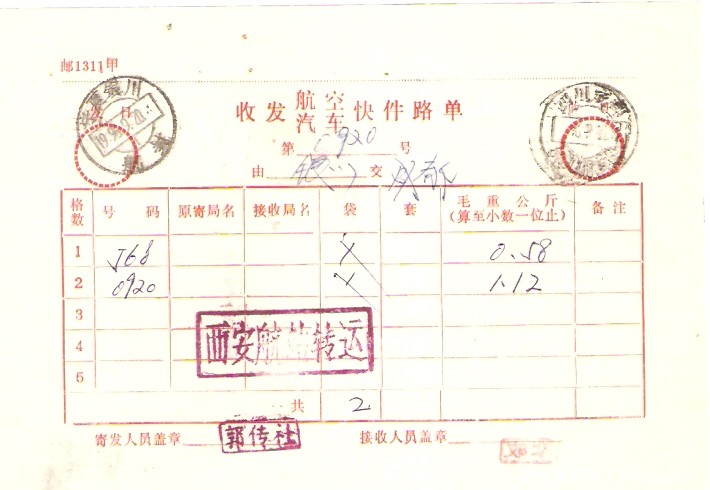 邮1311甲
收发 航空 汽车 快件路单
第 0920 号
由 银川 交 成都
格数 号码 原寄局名 接收局名 袋 套 毛重公斤(算至小数一位止) 备注
1 568 X 0.58
2 0920 X 1.12
3
西安航站转运
4
5
共 2
寄发人员盖章 郭传社 接收人员盖章